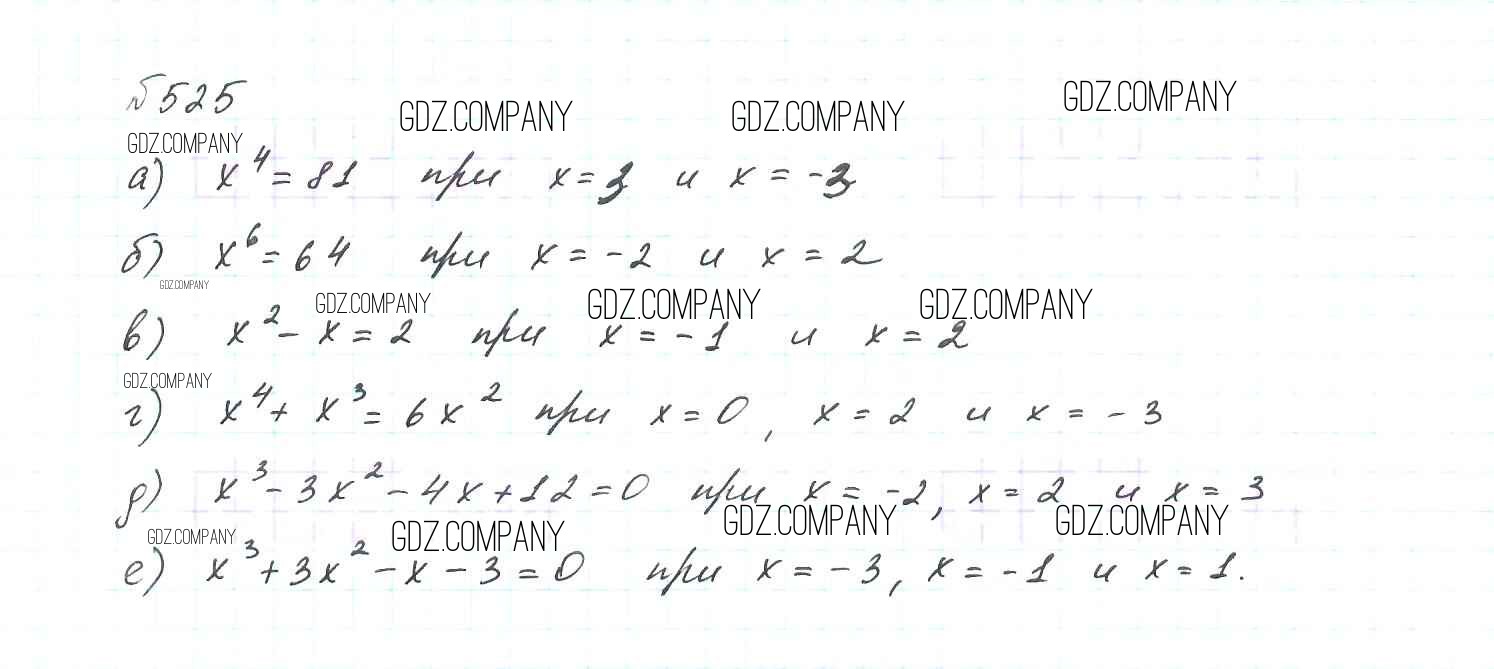 №525
GDZ.COMPANY GDZ.COMPANY GDZ.COMPANY
GDZ.COMPANY
а) x⁴ = 81 при x = 3 и x = -3
б) x⁶ = 64 при x = -2 и x = 2
GDZ.COMPANY
GDZ.COMPANY GDZ.COMPANY GDZ.COMPANY
в) x² - x = 2 при x = -1 и x = 2
GDZ.COMPANY
г) x⁴ + x³ = 6x² при x = 0, x = 2 и x = -3
д) x³ - 3x² - 4x + 12 = 0 при x = -2, x = 2 и x = 3
GDZ.COMPANY GDZ.COMPANY GDZ.COMPANY GDZ.COMPANY
е) x³ + 3x² - x - 3 = 0 при x = -3, x = -1 и x = 1.